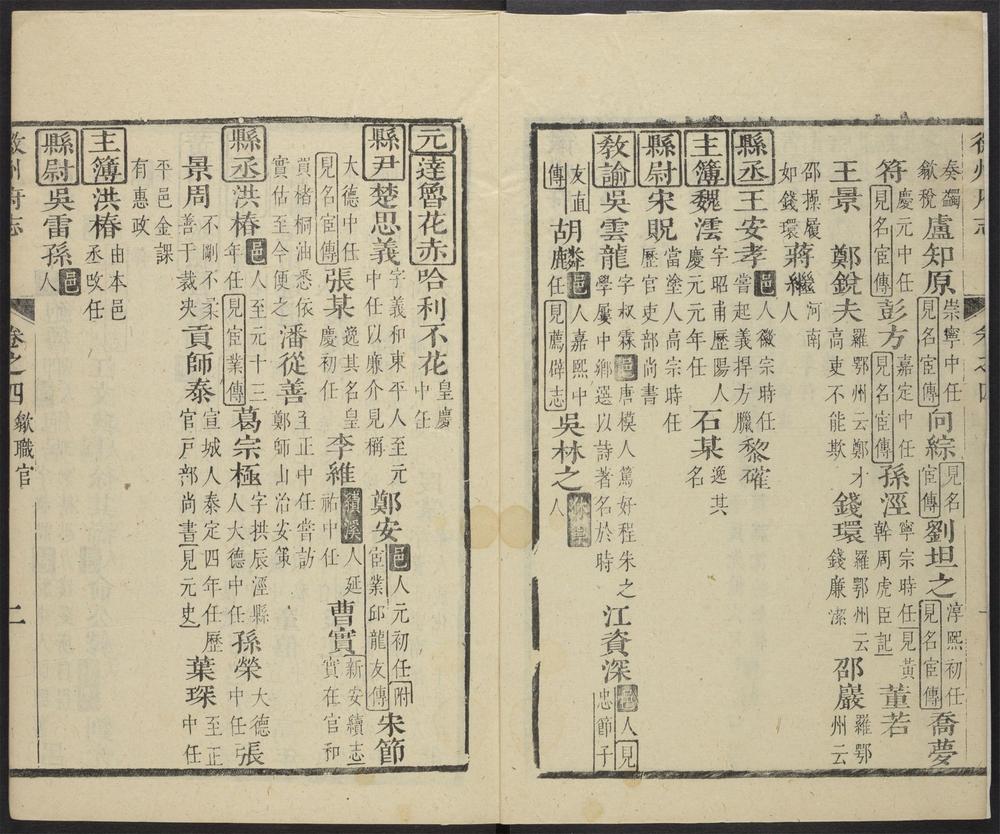 徽州府志
奏蠲歙稅 盧知原 崇寧中任見名宦傳 向綜 見名宦傳 劉坦之 淳熙初任見名宦傳 喬夢
符 慶元中任見名宦傳 彭方 嘉定中任見名宦傳 孫涇 寧宗時任見黃幹周虎臣記 董若
王景 鄭銳夫 羅鄂州云鄭才高吏不能欺 錢環 羅鄂州云錢廉潔 邵巖 羅鄂州云
邵操履如錢環 蔣繼 河南人
縣丞 王安孝 邑人徽宗時任嘗起義捍方臘 黎確
主簿 魏澐 字昭甫歷陽人慶元元年任 石某 逸其名
縣尉 宋貺 當塗人高宗時任歷官吏部尚書
教諭 吳雲龍 字叔霖邑唐模人篤好程朱之學屢中鄉選以詩著名於時 江資深 邑人見忠節子
友直傳 胡麟 邑人嘉熙中任見薦辟志 吳林之 人
元 達魯花赤 哈利不花 皇慶中任
縣尹 楚思義 字義和東平人至元中任以廉介見稱 鄭安 邑人元初任附宦業邱龍友傳 宋節
大德中任見名宦傳 張某 逸其名皇慶初任 李維 績溪人延祐中任 曹實 新安續志實在官和
買楮桐油悉依實估至今便之 潘從善 至正中任嘗訪鄭師山治安策
縣丞 洪椿 邑人至元十三年任見宦業傳 葛宗極 字拱辰涇縣人大德中任 孫榮 大德中任 張
景周 不剛不柔善于裁決 貢師泰 宣城人泰定四年任歷官戸部尚書見元史 葉琛 至正中任
平邑金課有惠政
主簿 洪椿 由本邑丞改任
縣尉 吳雷孫 邑人
卷之四 歙職官
二